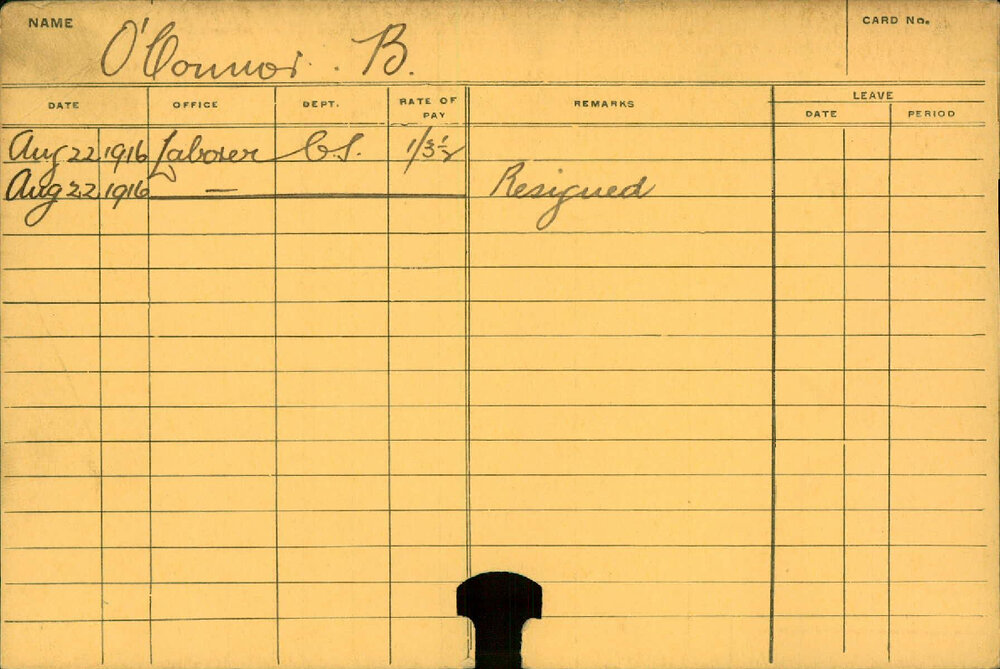 NAME O'Connor. B. CARD No.
DATE OFFICE DEPT. RATE OF PAY REMARKS LEAVE
DATE PERIOD
Aug 22 1916 Laborer C.S. 1/3½
Aug 22 1916 — Resigned